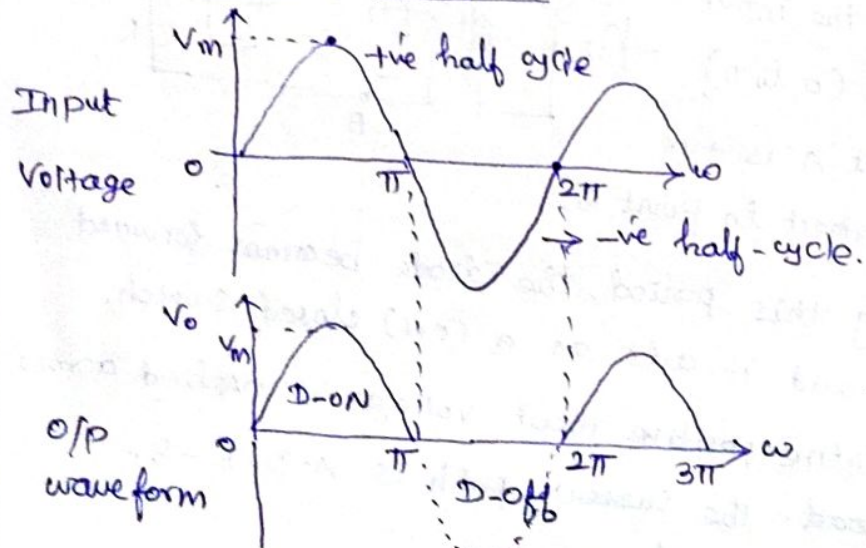 Vm
+ve half cycle
Input
Voltage
0
π
2π
ω
→ -ve half-cycle.
Vo
Vm
D-ON
O/P
waveform
0
π
D-Off
2π
3π
ω